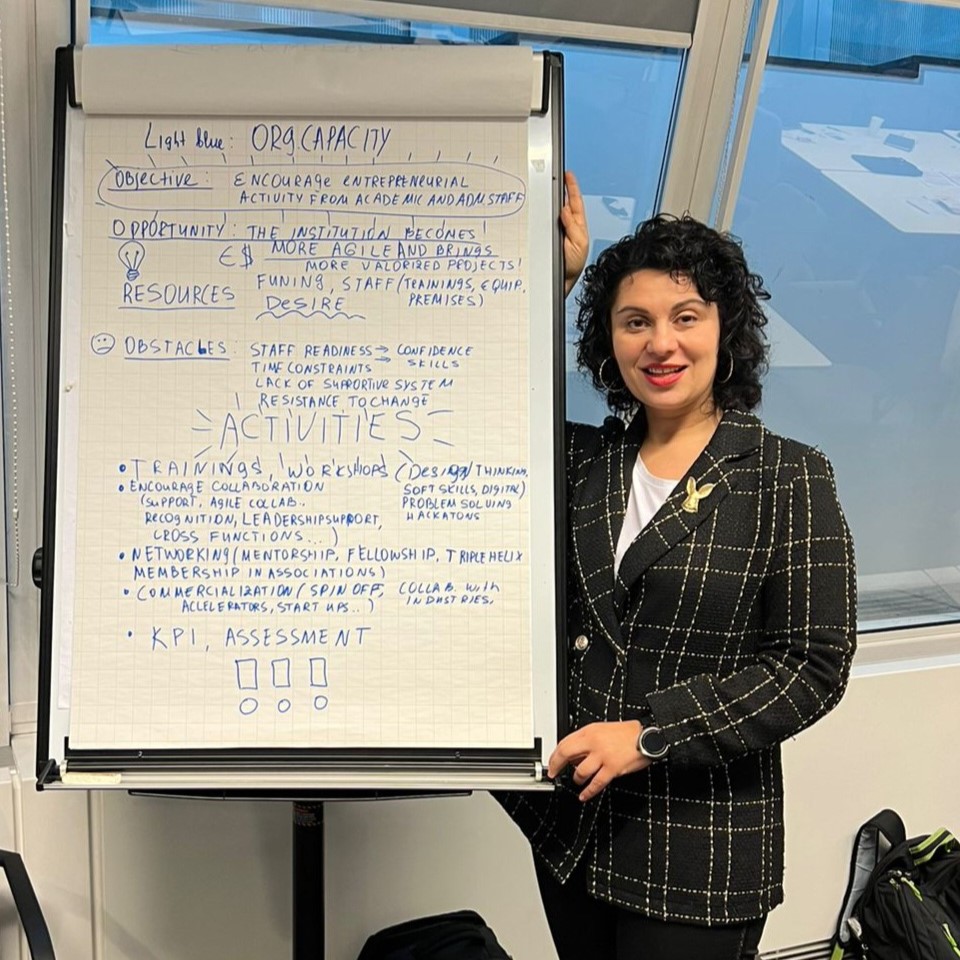 Light blue: ORG.CAPACITY
Objective: ENCOURAGE ENTREPRENEURIAL
ACTIVITY FROM ACADEMIC AND ADM.STAFF
OPPORTUNITY: THE INSTITUTION BECONES!
€$ MORE AGILE AND BRINGS
MORE VALORIZED PROJECTS!
RESOURCES FUNING, STAFF (TRAININGS, EQUIP.
DESIRE PREMISES)
OBSTACLES: STAFF READINESS → CONFIDENCE
TIME CONSTRAINTS → SKILLS
LACK OF SUPPORTIVE SYSTEM
RESISTANCE TO CHANGE
ACTIVITIES
• TRAININGS, WORKSHOPS (Design THINKING,
SOFT SKILLS, DIGITAL)
PROBLEM SOLVING
HACKATONS
• ENCOURAGE COLLABORATION
(SUPPORT, AGILE COLLAB..
RECOGNITION, LEADERSHIPSUPPORT,
CROSS FUNCTIONS...)
• NETWORKING (MENTORSHIP, FELLOWSHIP, TRIPLE HELIX
MEMBERSHIP IN ASSOCIATIONS)
• COMMERCIALIZATION (SPIN OFF,
ACLELERATORS, START UPS..)
COLLAB. with
INDUSTRIES,
• KPI, ASSESSMENT